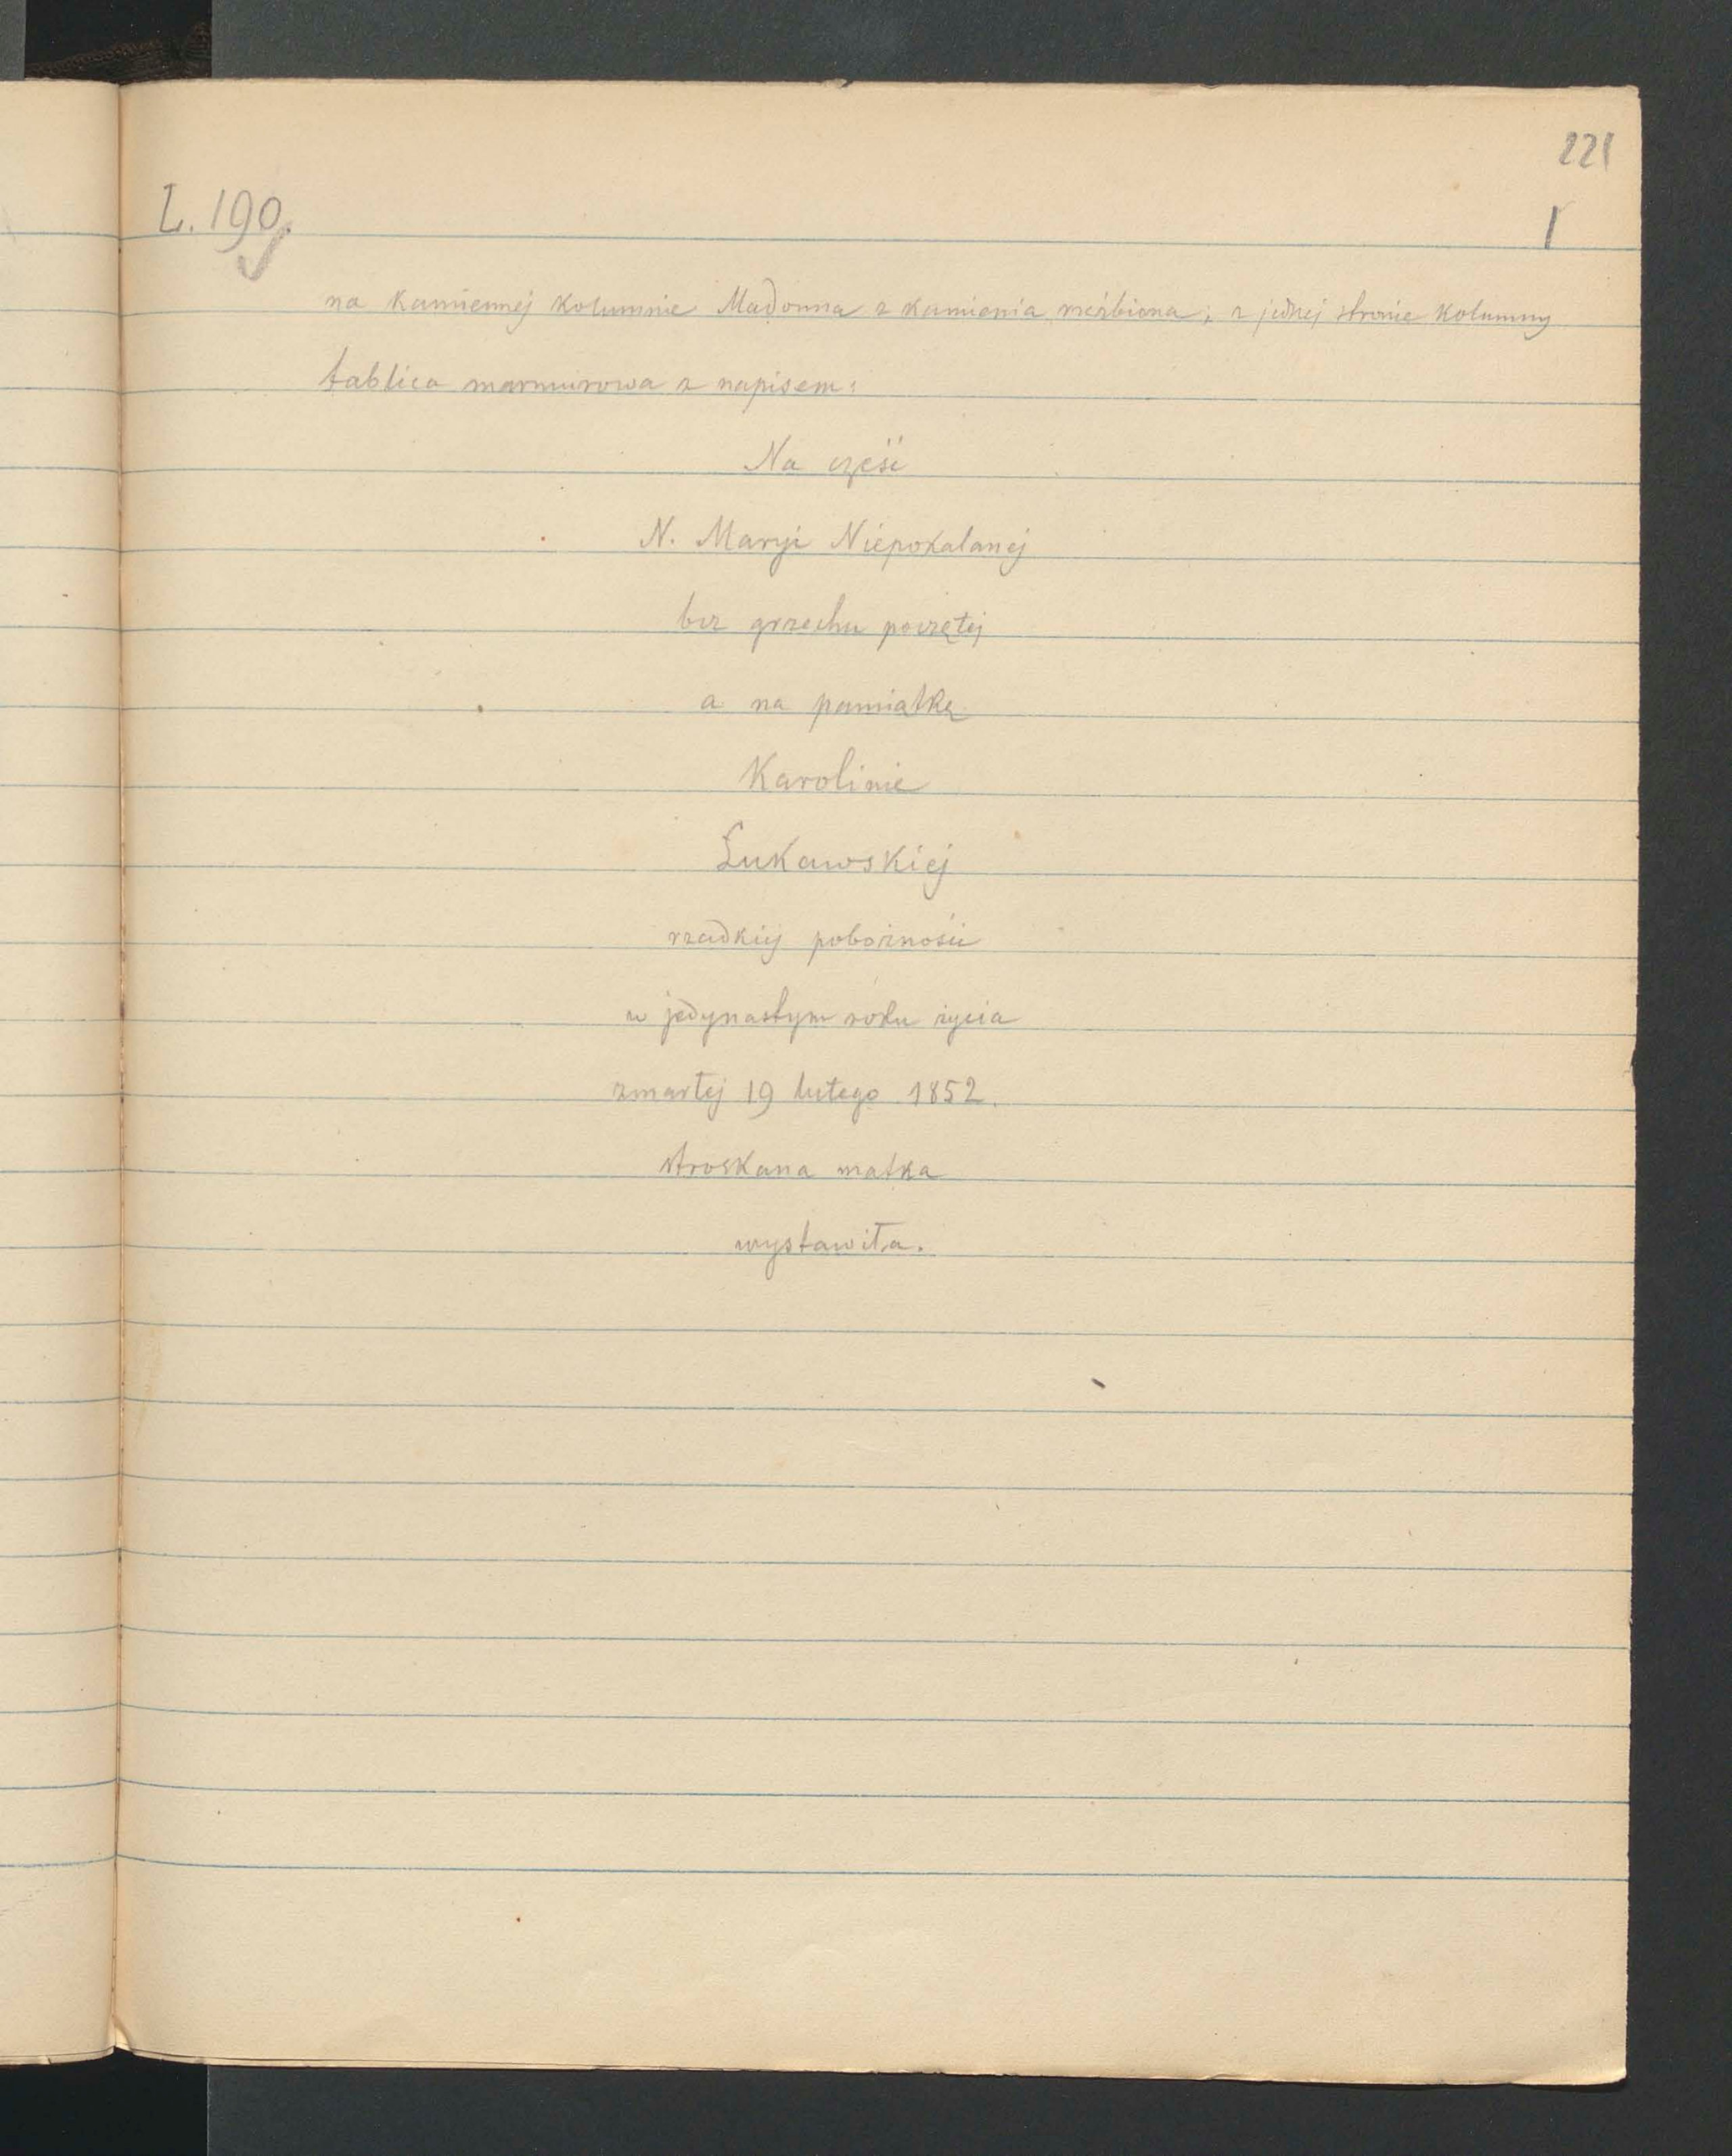 221
L. 190.
1
na kamiennej kolumnie Madonna z kamienia rzeźbiona; z jednej stronie kolumny
tablica marmurowa z napisem:
Na cześć
N. Maryi Niepokalanej
bez grzechu poczętej
a na pamiątkę
Karolinie
Łukawskiej
rzadkiej pobożności
w jedynastym roku życia
zmarłej 19 lutego 1852.
stroskana matka
wystawiła.